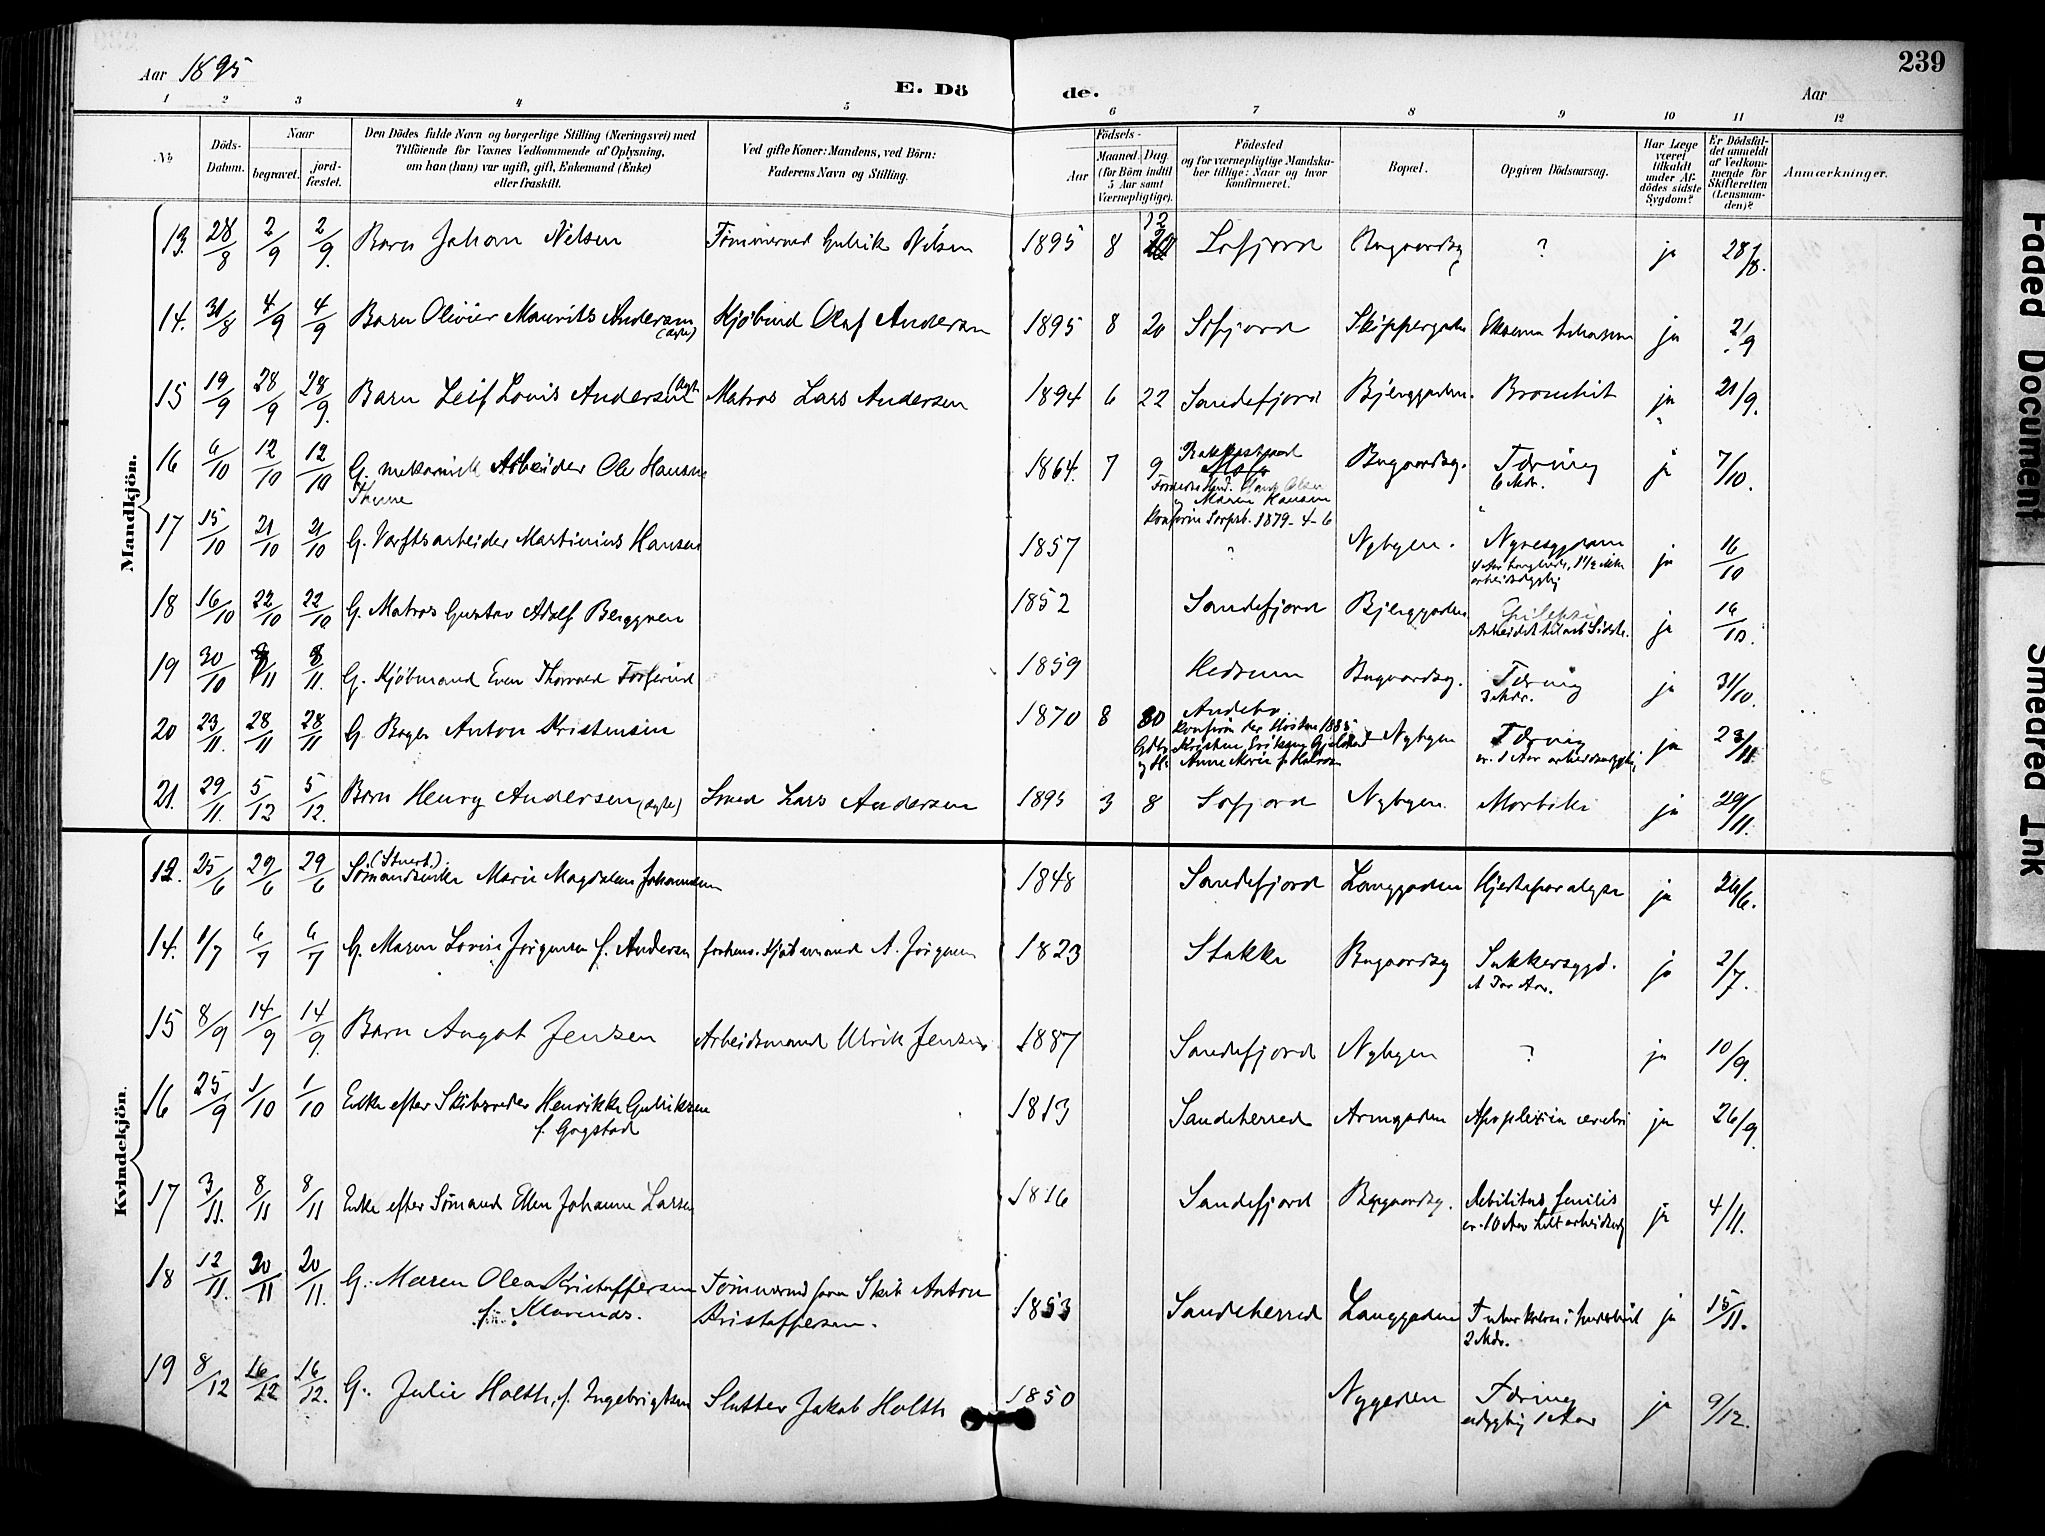 Aar 1895
E. Dö de.
Aar
239
1 2 3 4 5 6 7 8 9 10 11 12
No
Döds-Datum.
Naar
begravet.
jord-fæstet.
Den Dödes fulde Navn og borgerlige Stilling (Næringsvei) med
Tilföiende for Voxnes Vedkommende af Oplysning,
om han (hun) var ugift, gift, Enkemand (Enke)
eller fraskilt.
Ved gifte Koner: Mandens, ved Börn:
Faderens Navn og Stilling.
Födsels-
Aar
Maaned.
Dag
(for Börn indtil
5 Aar samt
Værnepligtige).
Födested
og for værnepligtige Mandska-
ber tillige: Naar og hvor
konfirmeret.
Bopæl.
Opgiven Dödsaarsag.
Har Læge
været
tilkaldt
under Af-
dödes sidste
Sygdom?
Er Dödsfal-
det anmeldt
af Vedkom-
mende for
Skifteretten
(Lensman-
den)?
Anmærkninger.
Mandkjön.
13. 28/8 2/9 2/9. Barn Johan Nilsen Tømmermd Gulrik Nilsen 1895 8 12 Sofjord Bugaardsg ? ja 28/8.
14. 31/8 4/9 4/9 Barn Olivier Mauritz Andersen (ægte) Kjøbmd Olaf Andersen 1895 8 20 Sofjord Skippergaden ja 2/9
15 19/9 28/9 28/9. Barn Leif Louis Andersen (ægte) Matros Lars Andersen 1894 6 22 Sandefjord Bjerggaden. Bronchit ja 21/9.
16 6/10 12/10 12/10 G. mekanisk Arbeider Ole Hansen 1864. 7 9 Bugaardsg. Tæring ja 7/10.
Thune
6 Mdr.
Maren Hansen
Konfirm Sarpsb. 1879-4-6
17 15/10 21/10 21/10 G. Værftsarbeider Martinius Hansen 1857 " Nybyen. Nyresygdom ja 16/10
18 16/10 22/10 22/10 G. Matros Gustav Adolf Berggren 1852 Sandefjord Bjerggaden. Epilepsi ja 16/10.
19 30/10 8/11 8/11. G. Kjøbmand Even Thorvald 1859 Hedrum Bugaardsg. Tæring ja 31/10.
3 Mdr.
20 23/11. 28/11 28/11 G. Bager Anton Kristensen 1870 8 30 Andebu. Nybyen Tæring ja 23/11
21. 29/11. 5/12 5/12. Barn Henry Andersen (ægte) Smed Lars Andersen 1895 3 8 Sofjord Nybyen. Morbili ja 29/11.
Kvindekjön.
12. 25/6 29/6 29/6 Sømandsenke Marie Magdalene Johannesen 1848 Sandefjord Langgaden Hjerteparalyse ja 26/6.
14. 1/7 6/7 6/7 G. Maren Lovise Jørgensen f. Andersen Kjøbmand A. Jørgensen 1823 Stokke Bugaardsg Sukkersygd. ja 2/7.
15 8/9 14/9 14/9. Barn Angot Jensen Arbeidsmand Ulrik Jensen 1887 Sandefjord Nybyen ? ja 10/9.
16 25/9 1/10 1/10 Enke efter Skibsreder Henrikke Gulriksen 1813 Sandeherred Apoplexia cerebri ja 26/9.
f. Gogstad
17 3/11. 8/11 8/11 Enke efter Sømand Ellen Johanne Larsen 1816 Sandefjord Bugaardsg. Debilitas senilis ja 4/11.
18 12/11. 20/11 20/11. G. Maren Olea Kristoffersen Tømmermd Anton 1853 Sandeherred Langgaden ja 15/11.
Kristoffersen.
2 Mdr.
19 8/12 16/12 16/12. G. Julie Holth, f. Ingebrigtsen Slutter Jakob Holth 1850 Nygaden Tæring ja 9/12.
1 Aar
Faded Document
Smeared Ink